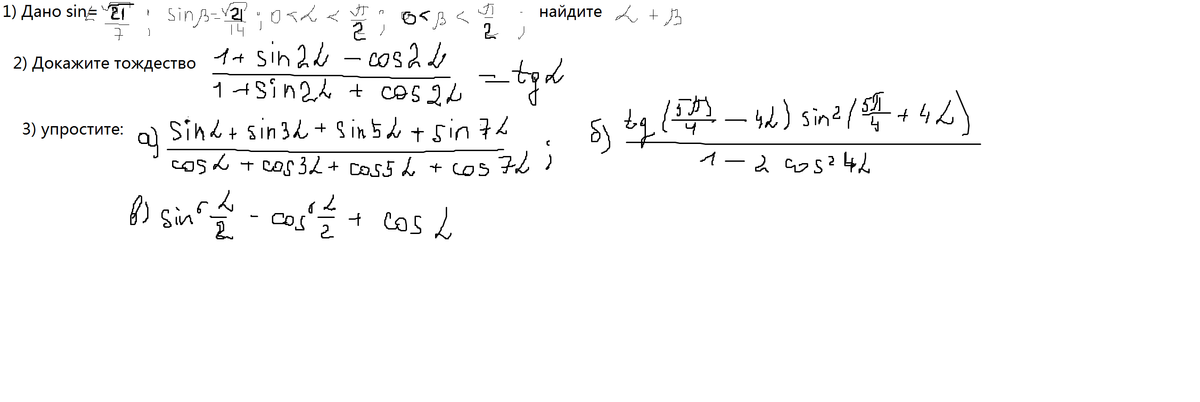 1) Дано sin α = √21/7 ; sin β = √21/14 ; 0 < α < π/2 ; 0 < β < π/2 ; найдите α + β
2) Докажите тождество (1 + sin 2α − cos 2α)/(1 + sin 2α + cos 2α) = tg α
3) упростите: а) (sin α + sin 3α + sin 5α + sin 7α)/(cos α + cos 3α + cos 5α + cos 7α) ; б) (tg (5π/4 − 4α) sin² (5π/4 + 4α))/(1 − 2 cos² 4α)
в) sin⁶ α/2 − cos⁶ α/2 + cos α